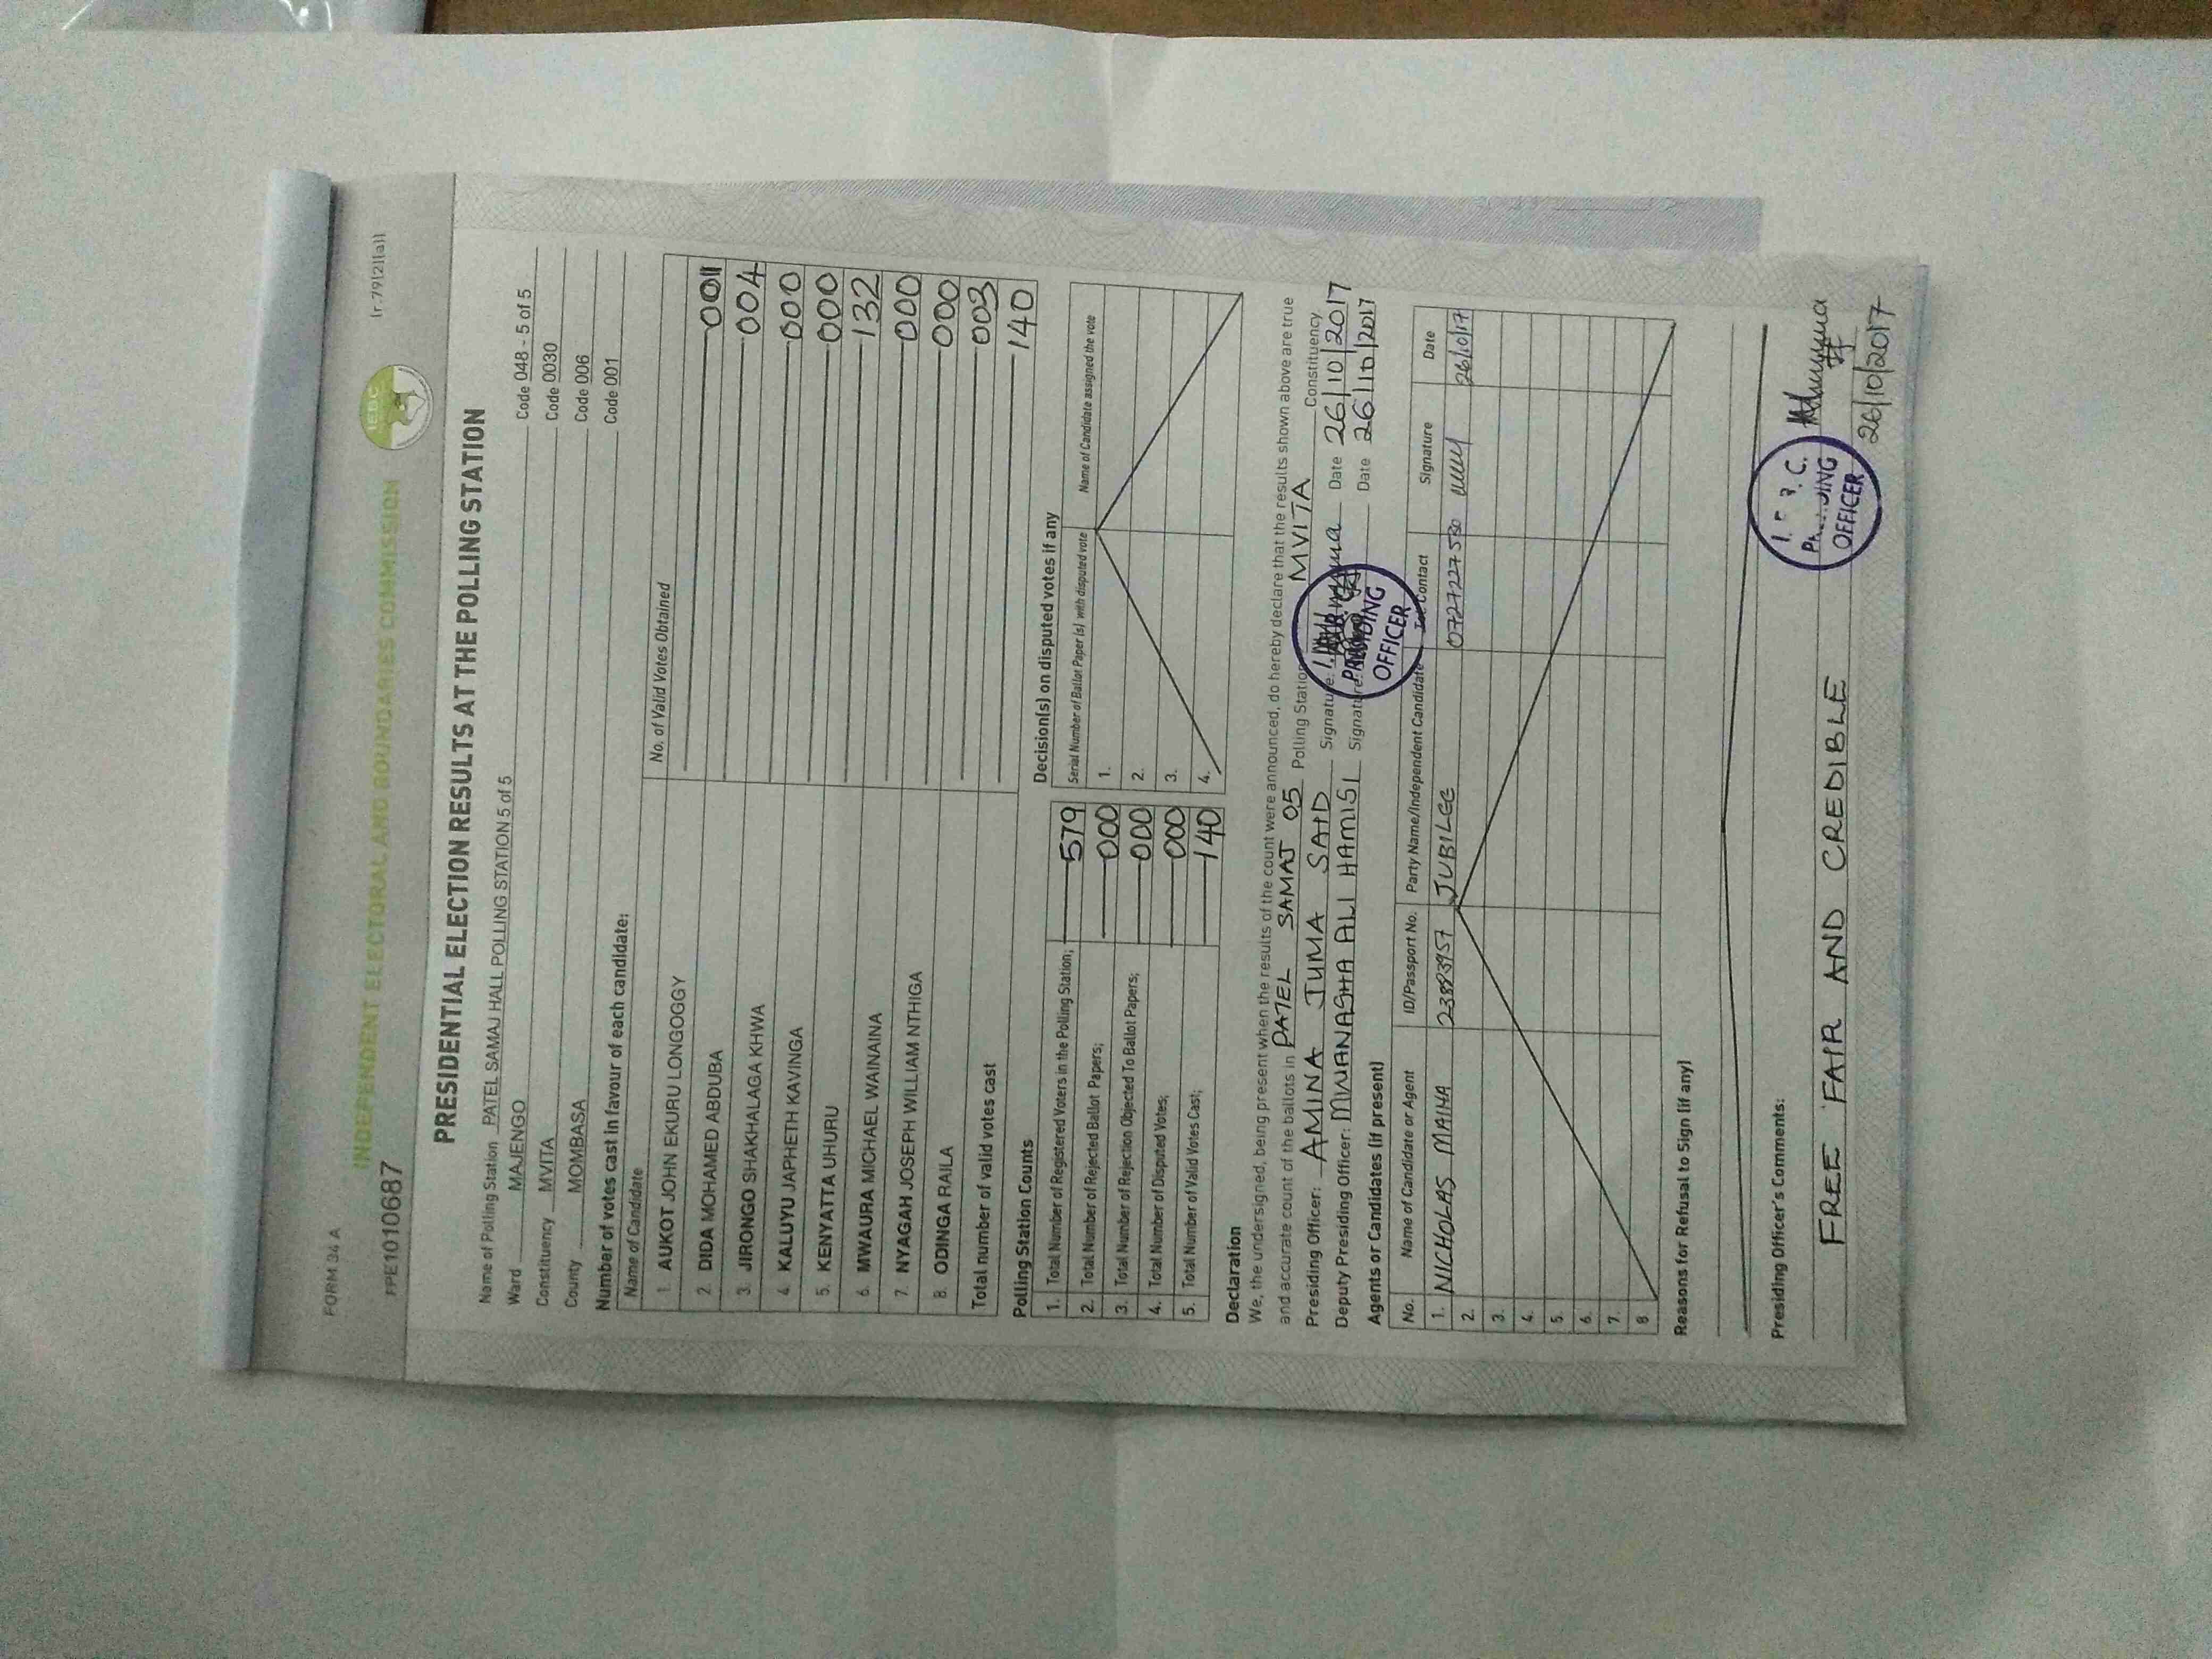 FORM 34 A
(r.79(2)(a))
INDEPENDENT ELECTORAL AND BOUNDARIES COMMISSION
IEBC
PPE1010687
PRESIDENTIAL ELECTION RESULTS AT THE POLLING STATION
Name of Polling Station PATEL SAMAJ HALL POLLING STATION 5 of 5 Code 048 - 5 of 5
Ward MAJENGO Code 0030
Constituency MVITA Code 006
County MOMBASA Code 001
Number of votes cast in favour of each candidate:
Name of Candidate No. of Valid Votes Obtained
1. AUKOT JOHN EKURU LONGOGGY 001
2. DIDA MOHAMED ABDUBA 004
3. JIRONGO SHAKHALAGA KHWA 000
4. KALUYU JAPHETH KAVINGA 000
5. KENYATTA UHURU 132
6. MWAURA MICHAEL WAINAINA 000
7. NYAGAH JOSEPH WILLIAM NTHIGA 000
8. ODINGA RAILA 003
Total number of valid votes cast 140
Polling Station Counts
1. Total Number of Registered Voters in the Polling Station; 579
2. Total Number of Rejected Ballot Papers; 000
3. Total Number of Rejection Objected To Ballot Papers; 000
4. Total Number of Disputed Votes; 000
5. Total Number of Valid Votes Cast; 140
Decision(s) on disputed votes if any
Serial Number of Ballot Paper (s) with disputed vote Name of Candidate assigned the vote
1.
2.
3.
4.
Declaration
We, the undersigned, being present when the results of the count were announced, do hereby declare that the results shown above are true
and accurate count of the ballots in PATEL SAMAJ 05 Polling Station MVITA Constituency
Presiding Officer: AMINA JUMA SAID Signature: Date 26/10/2017
Deputy Presiding Officer: MWANASHA ALI HAMISI Signature: Date 26/10/2017
PRESIDING
OFFICER
Agents or Candidates (if present)
No. Name of Candidate or Agent ID/Passport No. Party Name/Independent Candidate Tel. Contact Signature Date
1. NICHOLAS MAINA 23883957 JUBILEE 0727227580 26/10/17
2.
3.
4.
5.
6.
7.
8.
Reasons for Refusal to Sign (if any)
Presiding Officer's Comments:
FREE FAIR AND CREDIBLE
OFFICER
26/10/2017